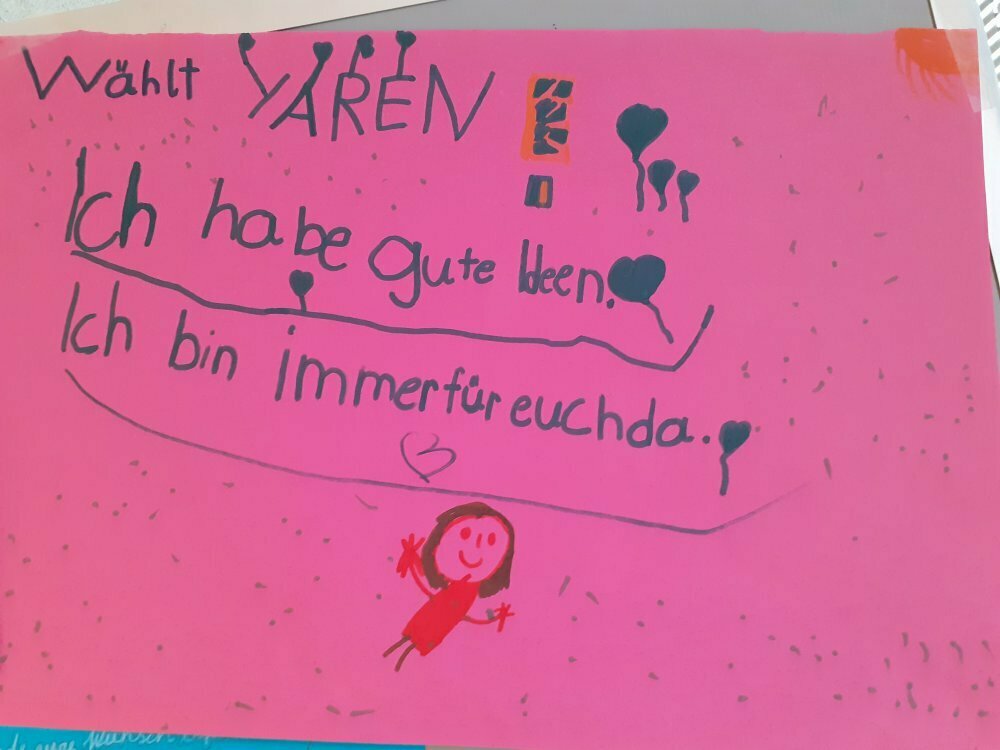 Wählt YAREN
Ich habe gute Ideen.
Ich bin immer für euch da.